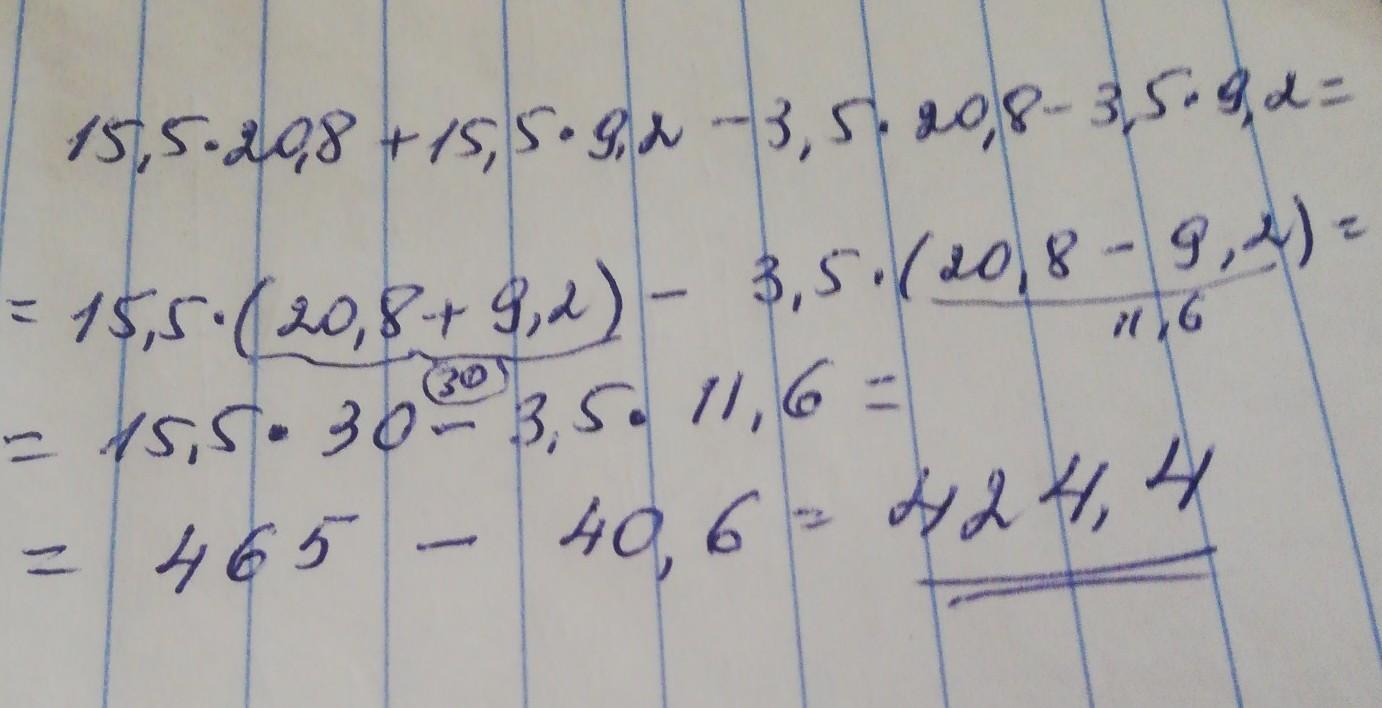 15,5·20,8 + 15,5·9,2 - 3,5·20,8 - 3,5·9,2 =
= 15,5·(20,8 + 9,2) - 3,5·(20,8 - 9,2) =
(30) 11,6
= 15,5·30 - 3,5·11,6 =
= 465 - 40,6 = 424,4